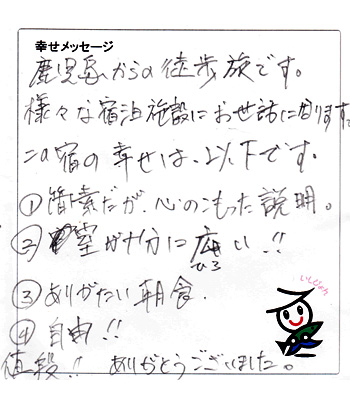 幸せメッセージ
鹿児島からの徒歩旅です。
様々な宿泊施設にお世話に周ります
この宿の幸せは、以下です。
①簡素だが、心のこもった説明。
②室が十分に広い!!
ひろ
③ありがたい朝食.
④自由!!
値段!! ありがとうございました。